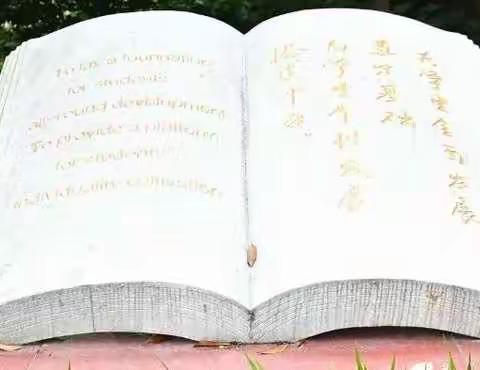 To lay a foundation
for students'
all-round development
To provide a platform
for students'
individuality cultivation
为学生全面发展
奠定基础
为学生个性发展
搭建平台。